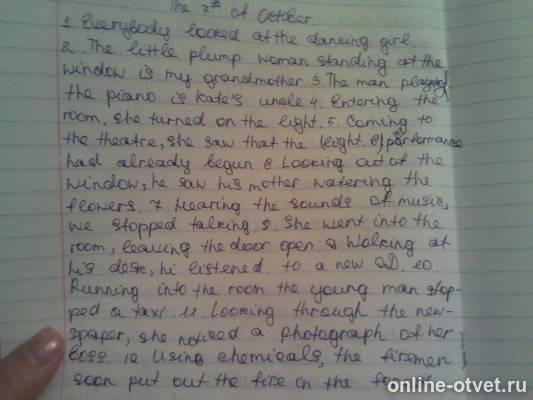 The 7th of October.
1 Everybody looked at the dancing girl.
2. The little plump woman standing at the
window is my grandmother. 3 The man playing
the piano is Kate's uncle. 4. Entering the
room, she turned on the light. 5. Coming to
the theatre, she saw that the (light. 6) performance
had already begun. 6. Looking out of the
window, he saw his mother watering the
flowers. 7. Hearing the sounds of music,
we stopped talking. 8. She went into the
room, leaving the door open. 9 Walking at
his desk, hi listened to a new CD. 10.
Running into the room the young man stop-
ped a taxi. 11. Looking through the new-
spaper, she noticed a photograph of her
boss 12 Using chemicals, the firemen
soon put out the fire in the
online-otvet.ru